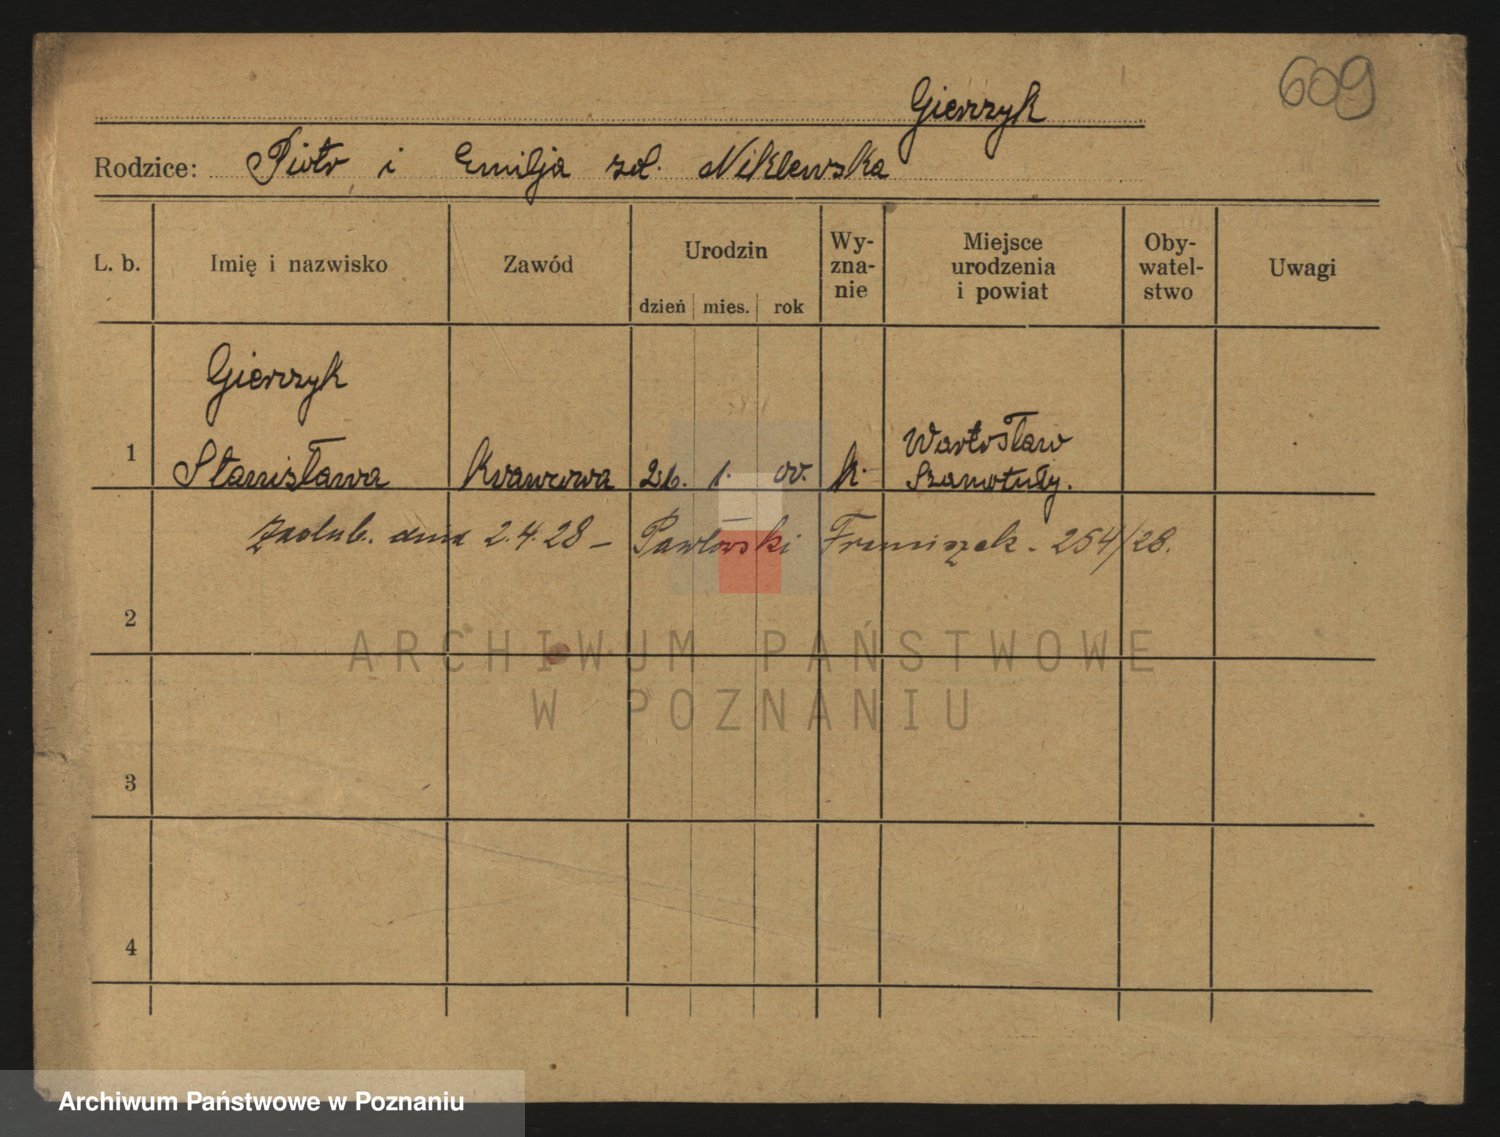 609
Gierczyk
Rodzice: Piotr i Emilja zd. Niklewska
L. b. Imię i nazwisko Zawód Urodzin dzień mies. rok Wy-zna-nie Miejsce urodzenia i powiat Oby-watel-stwo Uwagi
Gierczyk
1 Stanisława krawcowa 26. 1. 00. k. Wartosław Szamotuły.
Zaślub. dnia 2.4.28 – Pawłowski Franciszek - 254/28.
2
ARCHIWUM PAŃSTWOWE
W POZNANIU
3
4
Archiwum Państwowe w Poznaniu